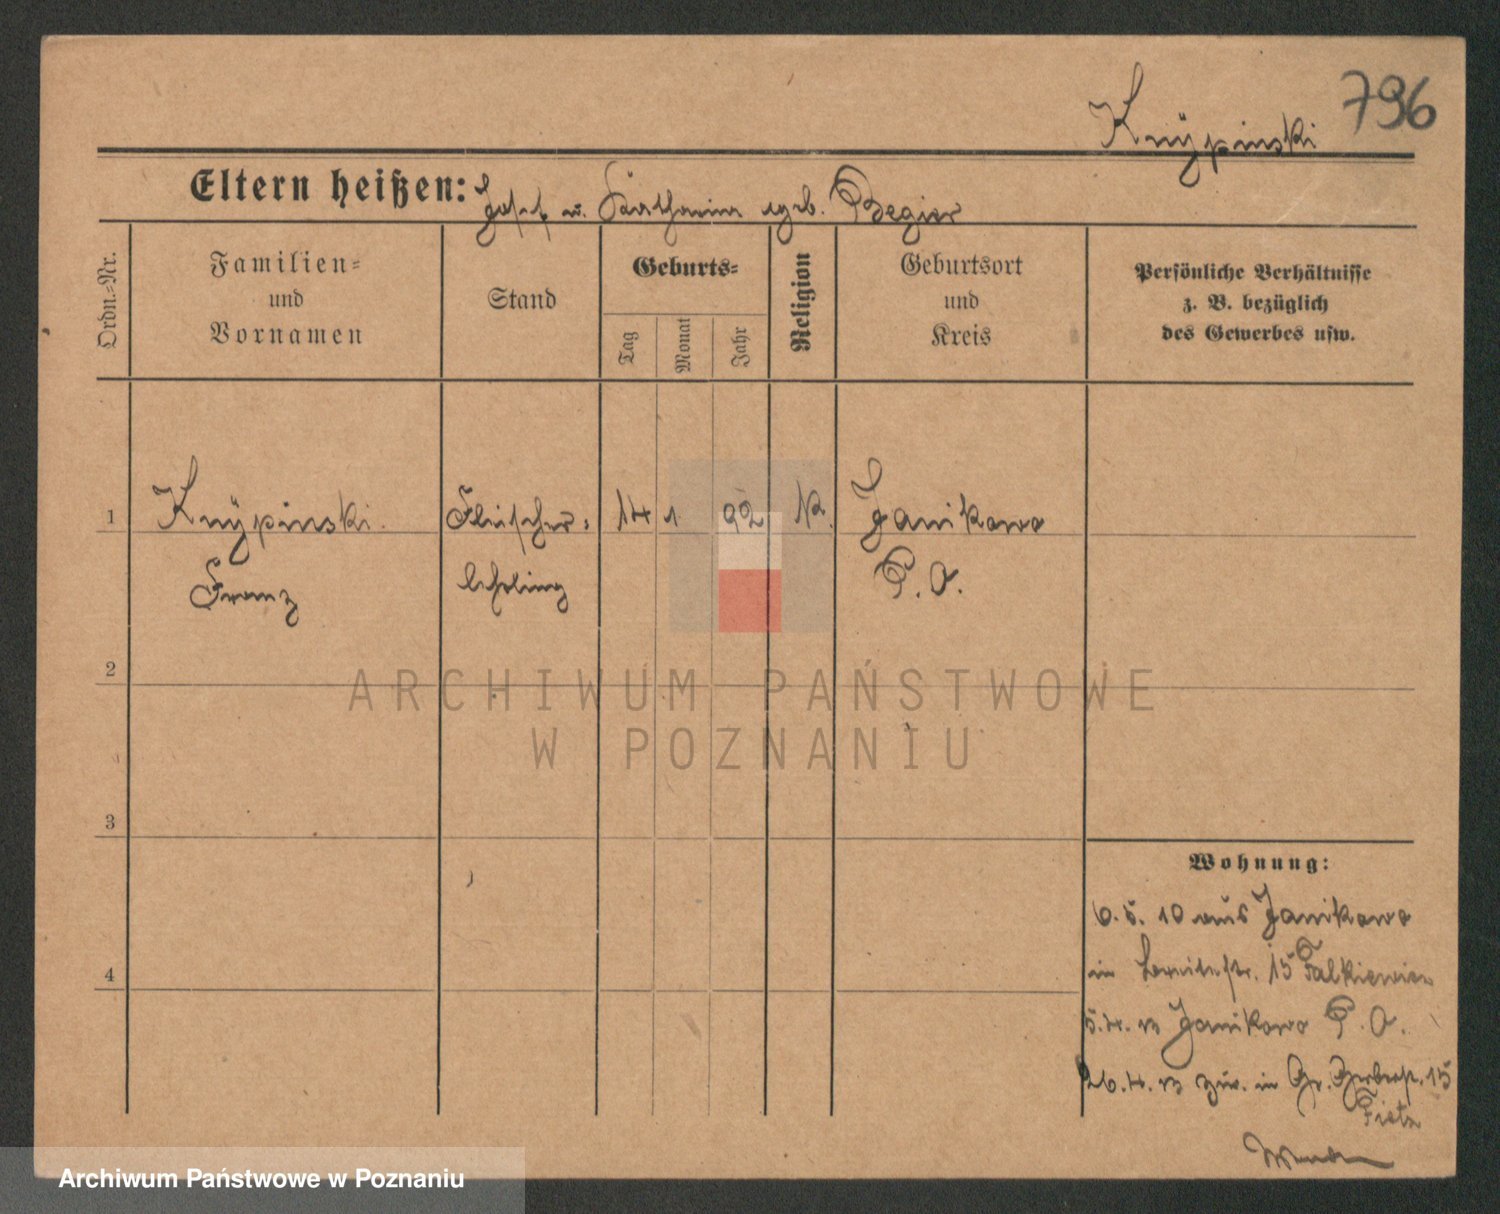 796
Knÿpinski
Eltern heißen: Josef u. Katharina geb. Begier
Ordn.-Nr.
Familien-
und
Vornamen
Stand
Geburts-
Tag
Monat
Jahr
Religion
Geburtsort
und
Kreis
Persönliche Verhältnisse
z. B. bezüglich
des Gewerbes usw.
1
Knÿpinski
Franz
Fleischer-
lehrling
14
1
92
K.
Janikowo
P. O.
2
3
4
Wohnung:
6.5.10 aus Janikowo
in 15 Falkiewicz
5.4. Janikowo P. O.
26.4. zur. in Gr. Gerberst. 15
ARCHIWUM PAŃSTWOWE
W POZNANIU
Archiwum Państwowe w Poznaniu